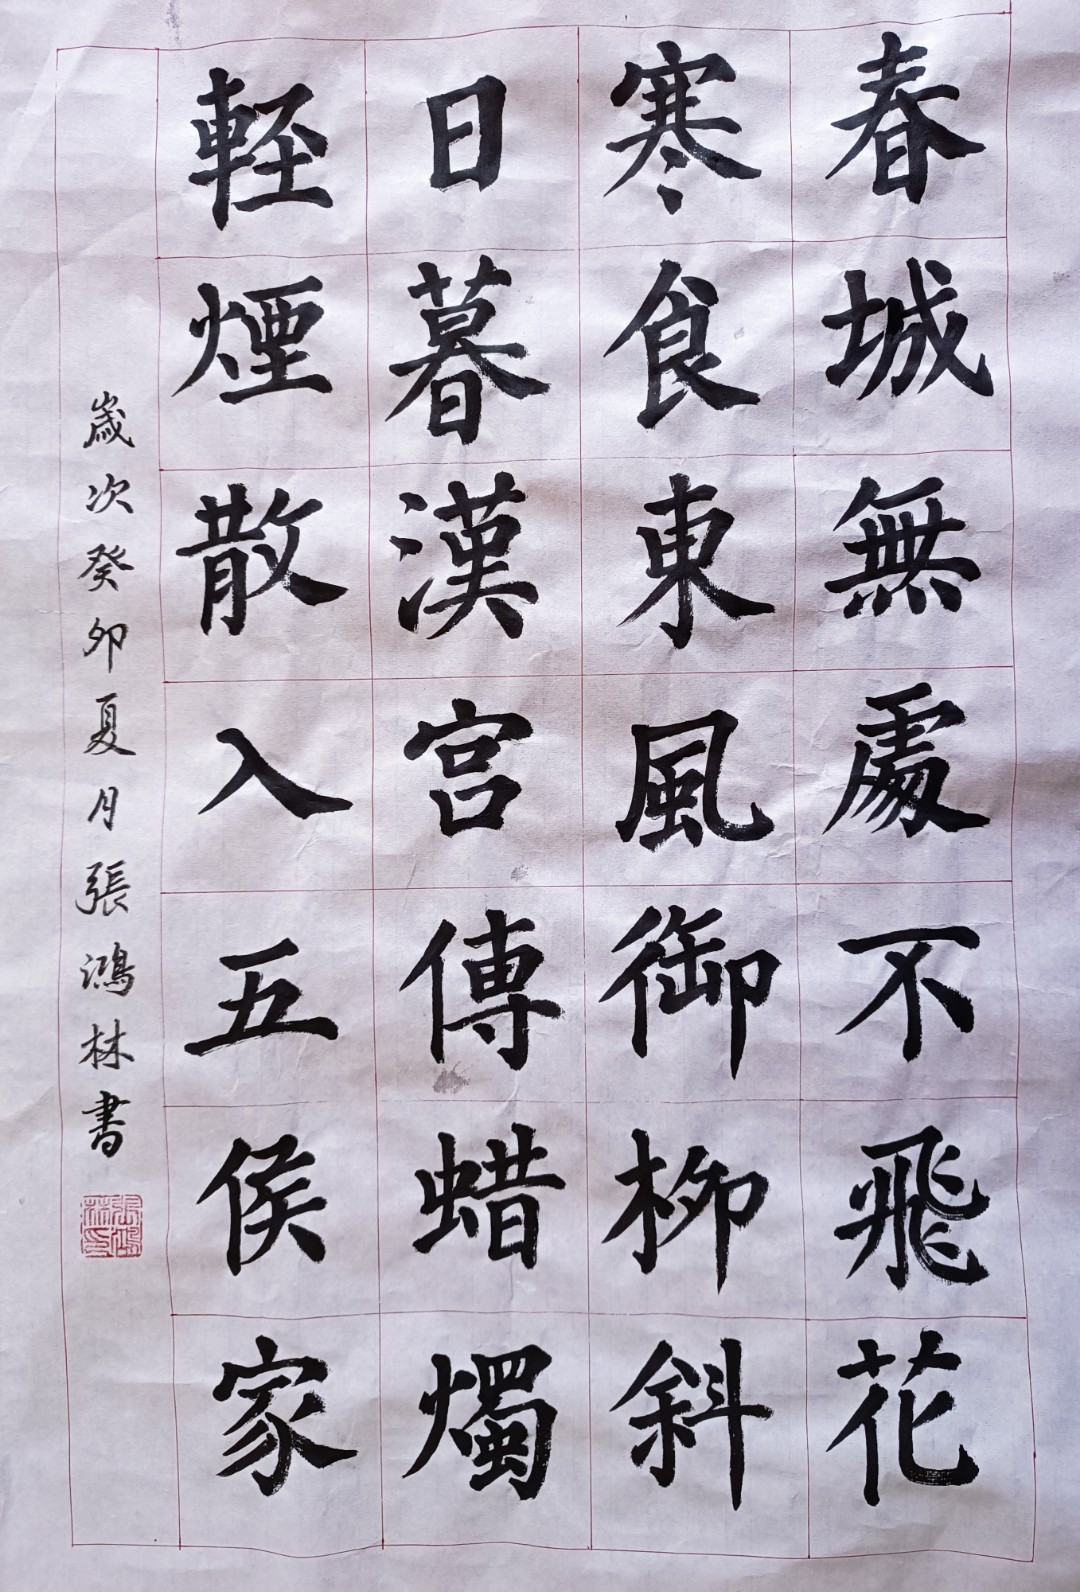 春城無處不飛花
寒食東風御柳斜
日暮漢宮傳蜡燭
輕煙散入五侯家
歲次癸卯夏月張鴻林書
張鴻林印